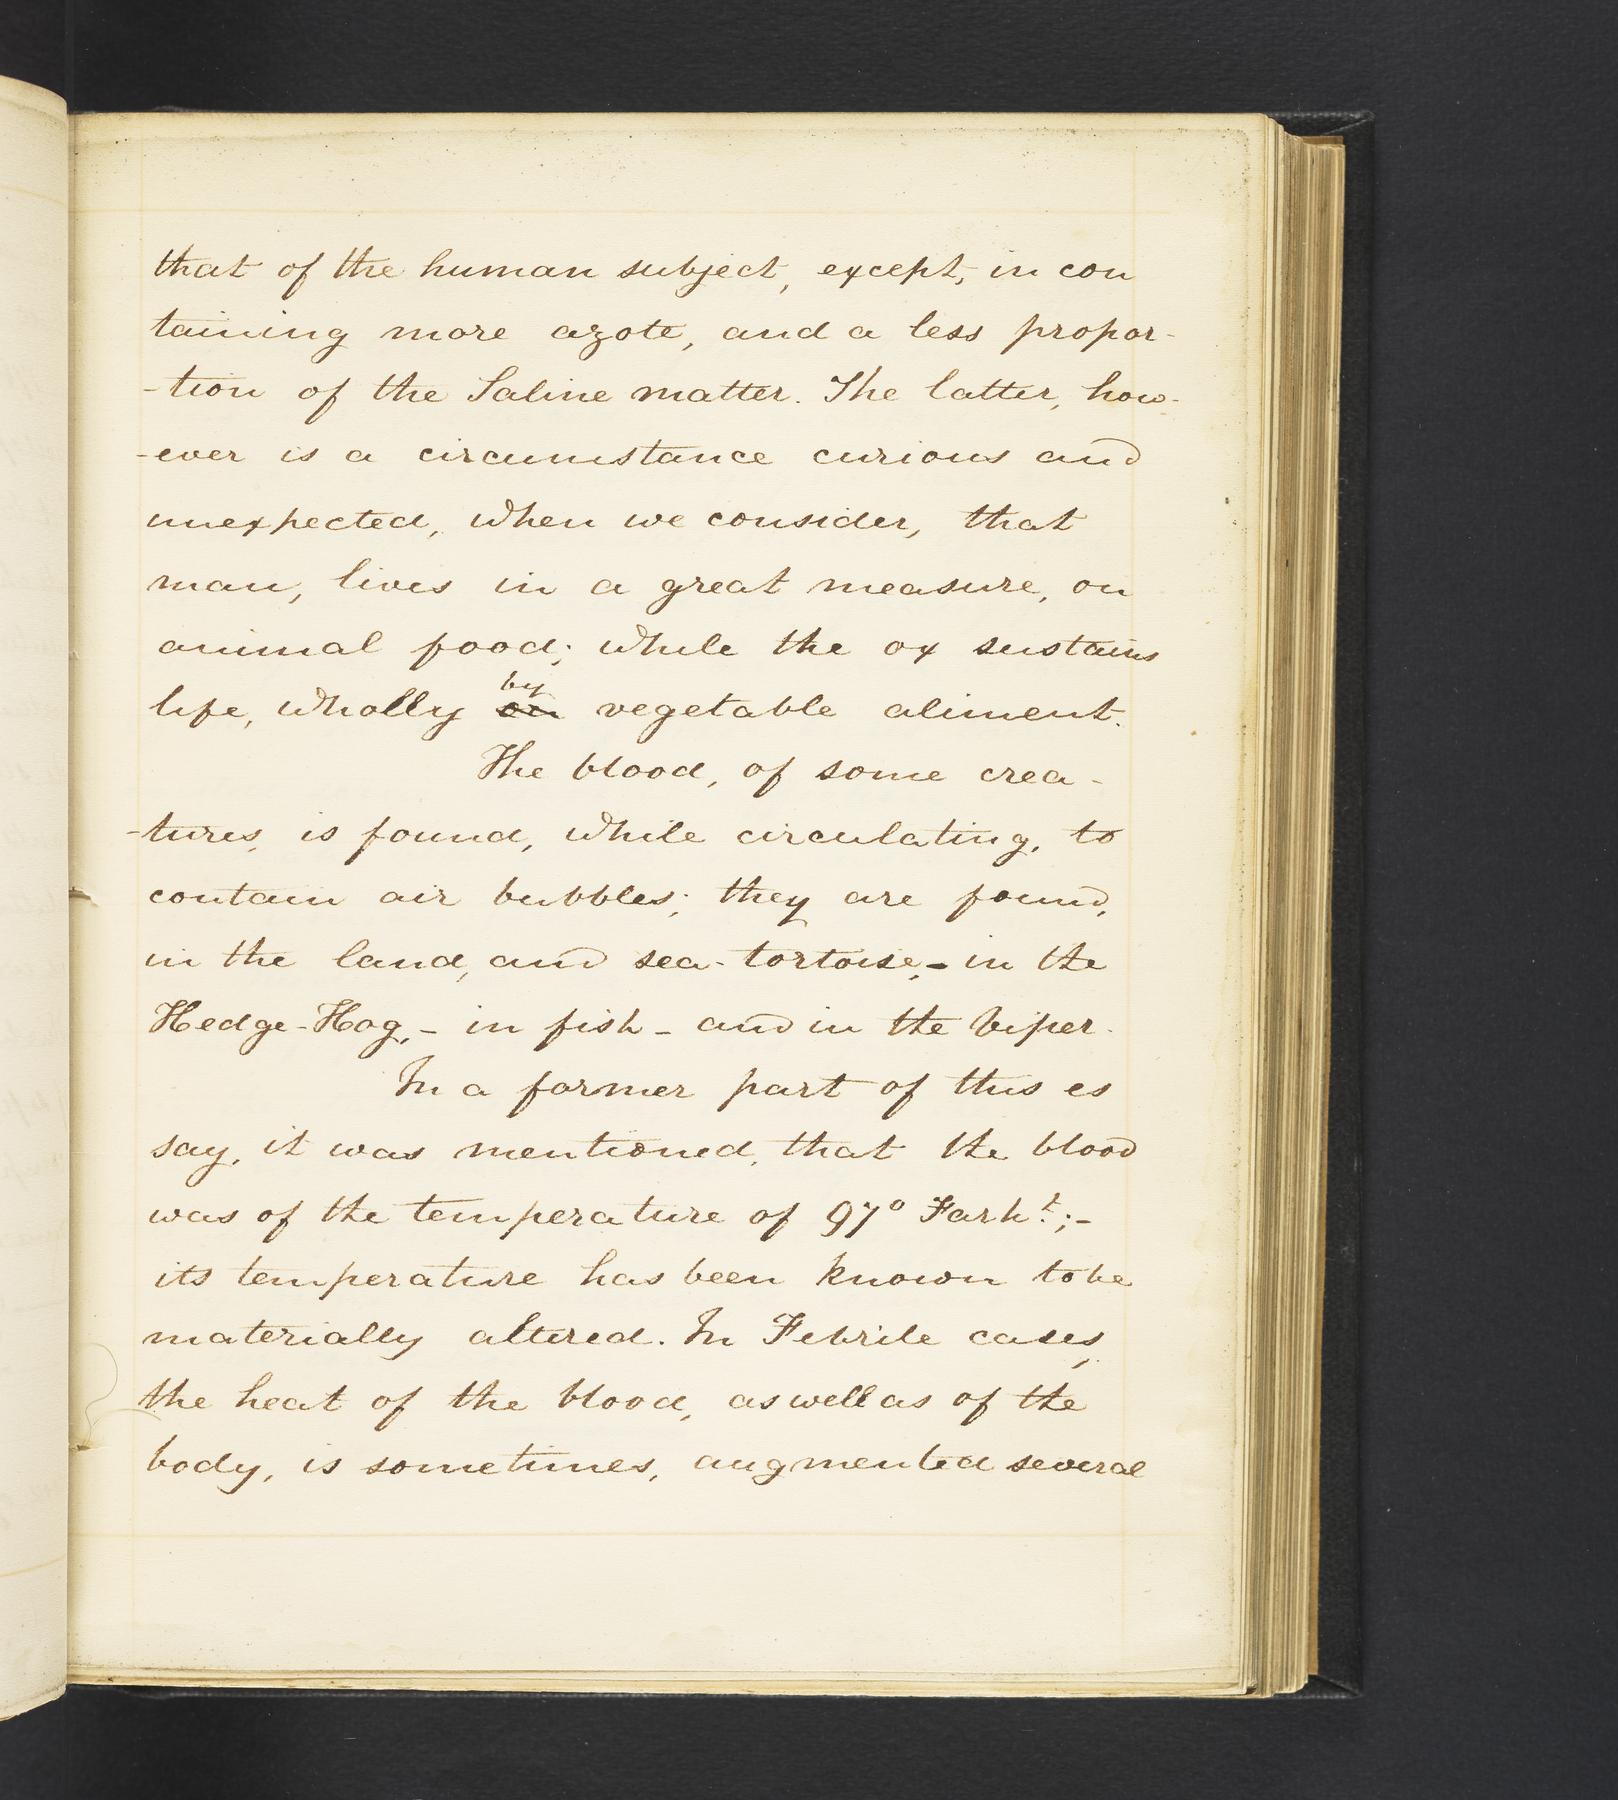 that of the human subject, except, in con
taining more azote, and a less propor-
-tion of the Saline matter. The latter, how-
-ever is a circumstance curious and
unexpected, when we consider, that
man, lives in a great measure, on
animal food; while the ox sustains
life, wholly on by vegetable aliment.
The blood, of some crea-
-tures, is found, while circulating, to
contain air bubbles; they are found,
in the land, and sea-tortoise,- in the
Hedge-Hog,- in fish - and in the Viper.
In a former part of this es
say, it was mentioned, that the blood
was of the temperature of 97° Farht.;-
its temperature has been known to be
materially altered. In Febrile cases,
the heat of the blood, as well as of the
body, is sometimes, augmented several